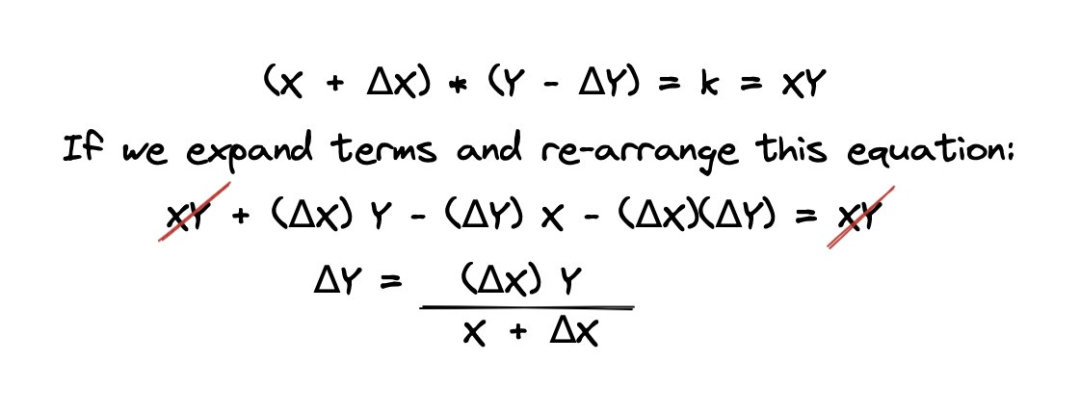 (X + ΔX) * (Y - ΔY) = k = XY
If we expand terms and re-arrange this equation:
XY + (ΔX) Y - (ΔY) X - (ΔX)(ΔY) = XY
ΔY = (ΔX) Y
X + ΔX